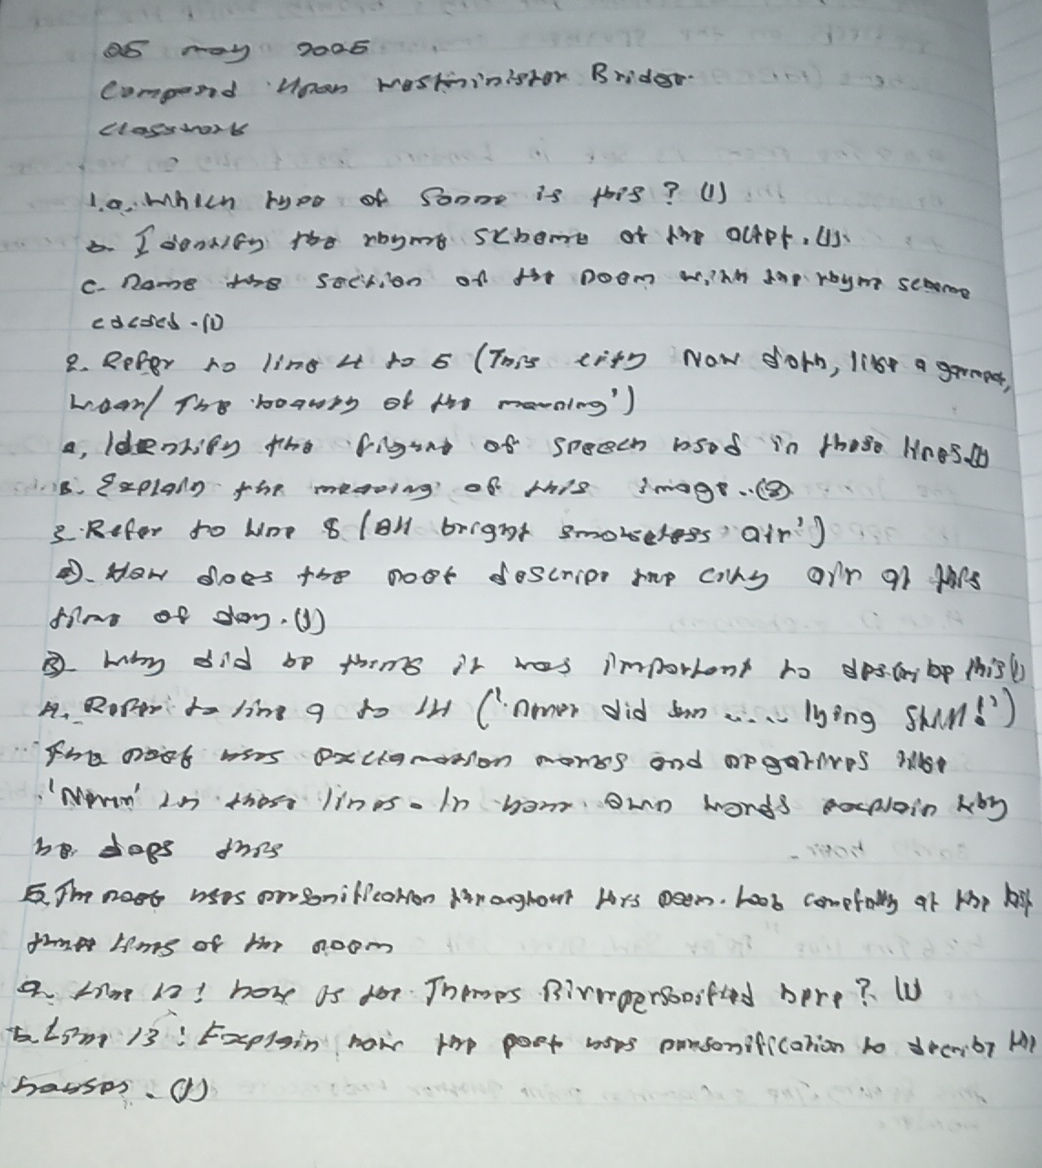 05 may 2025
Composed Upon Westminister Bridge.
Classwork
1.a. Which type of Sonne is this? (1)
b. Identify the rhyme scheme of the octet. (1).
c. Name the section of the poem with the rhyme scheme
cdcdcd. (1)
2. Refer to line 4 to 5 (This city Now doth, like a garment,
wear/ The beauty of the morning')
a, Identify the figure of speech used in these lines. (1)
B. Explain the meaning of this image. (2)
3. Refer to line 8 (All bright smokeless air')
a). How does the poet descripe the city air at this
time of day. (1)
B) Why did he think it was important to describe this (1)
4. Refer to line 9 to 14 ('never did sun ..... lying still!')
The poet uses exclamation marks and negatives like
'Never' in these lines. In your own words explain why
he does this
5. The poet uses personification throughout this poem. Look carefully at the last
three lines of the poem
a. Line 12: how is the Thames River personified here? (1)
b. Line 13: Explain how the poet uses personification to decribe the
houses. (1)